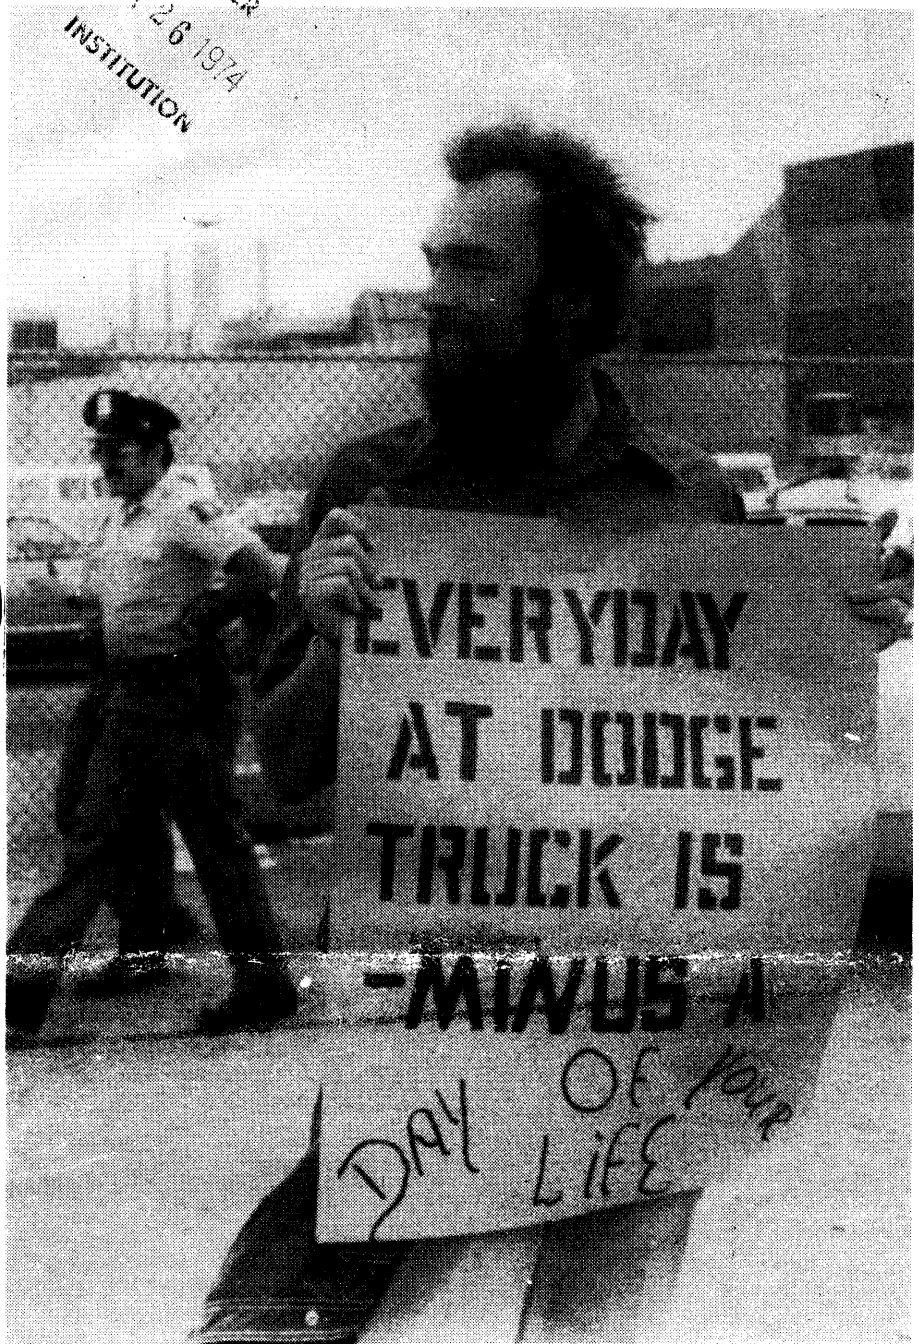 26 1974
INSTITUTION
EVERYDAY
AT DODGE
TRUCK IS
-MINUS A
DAY OF YOUR
LIFE